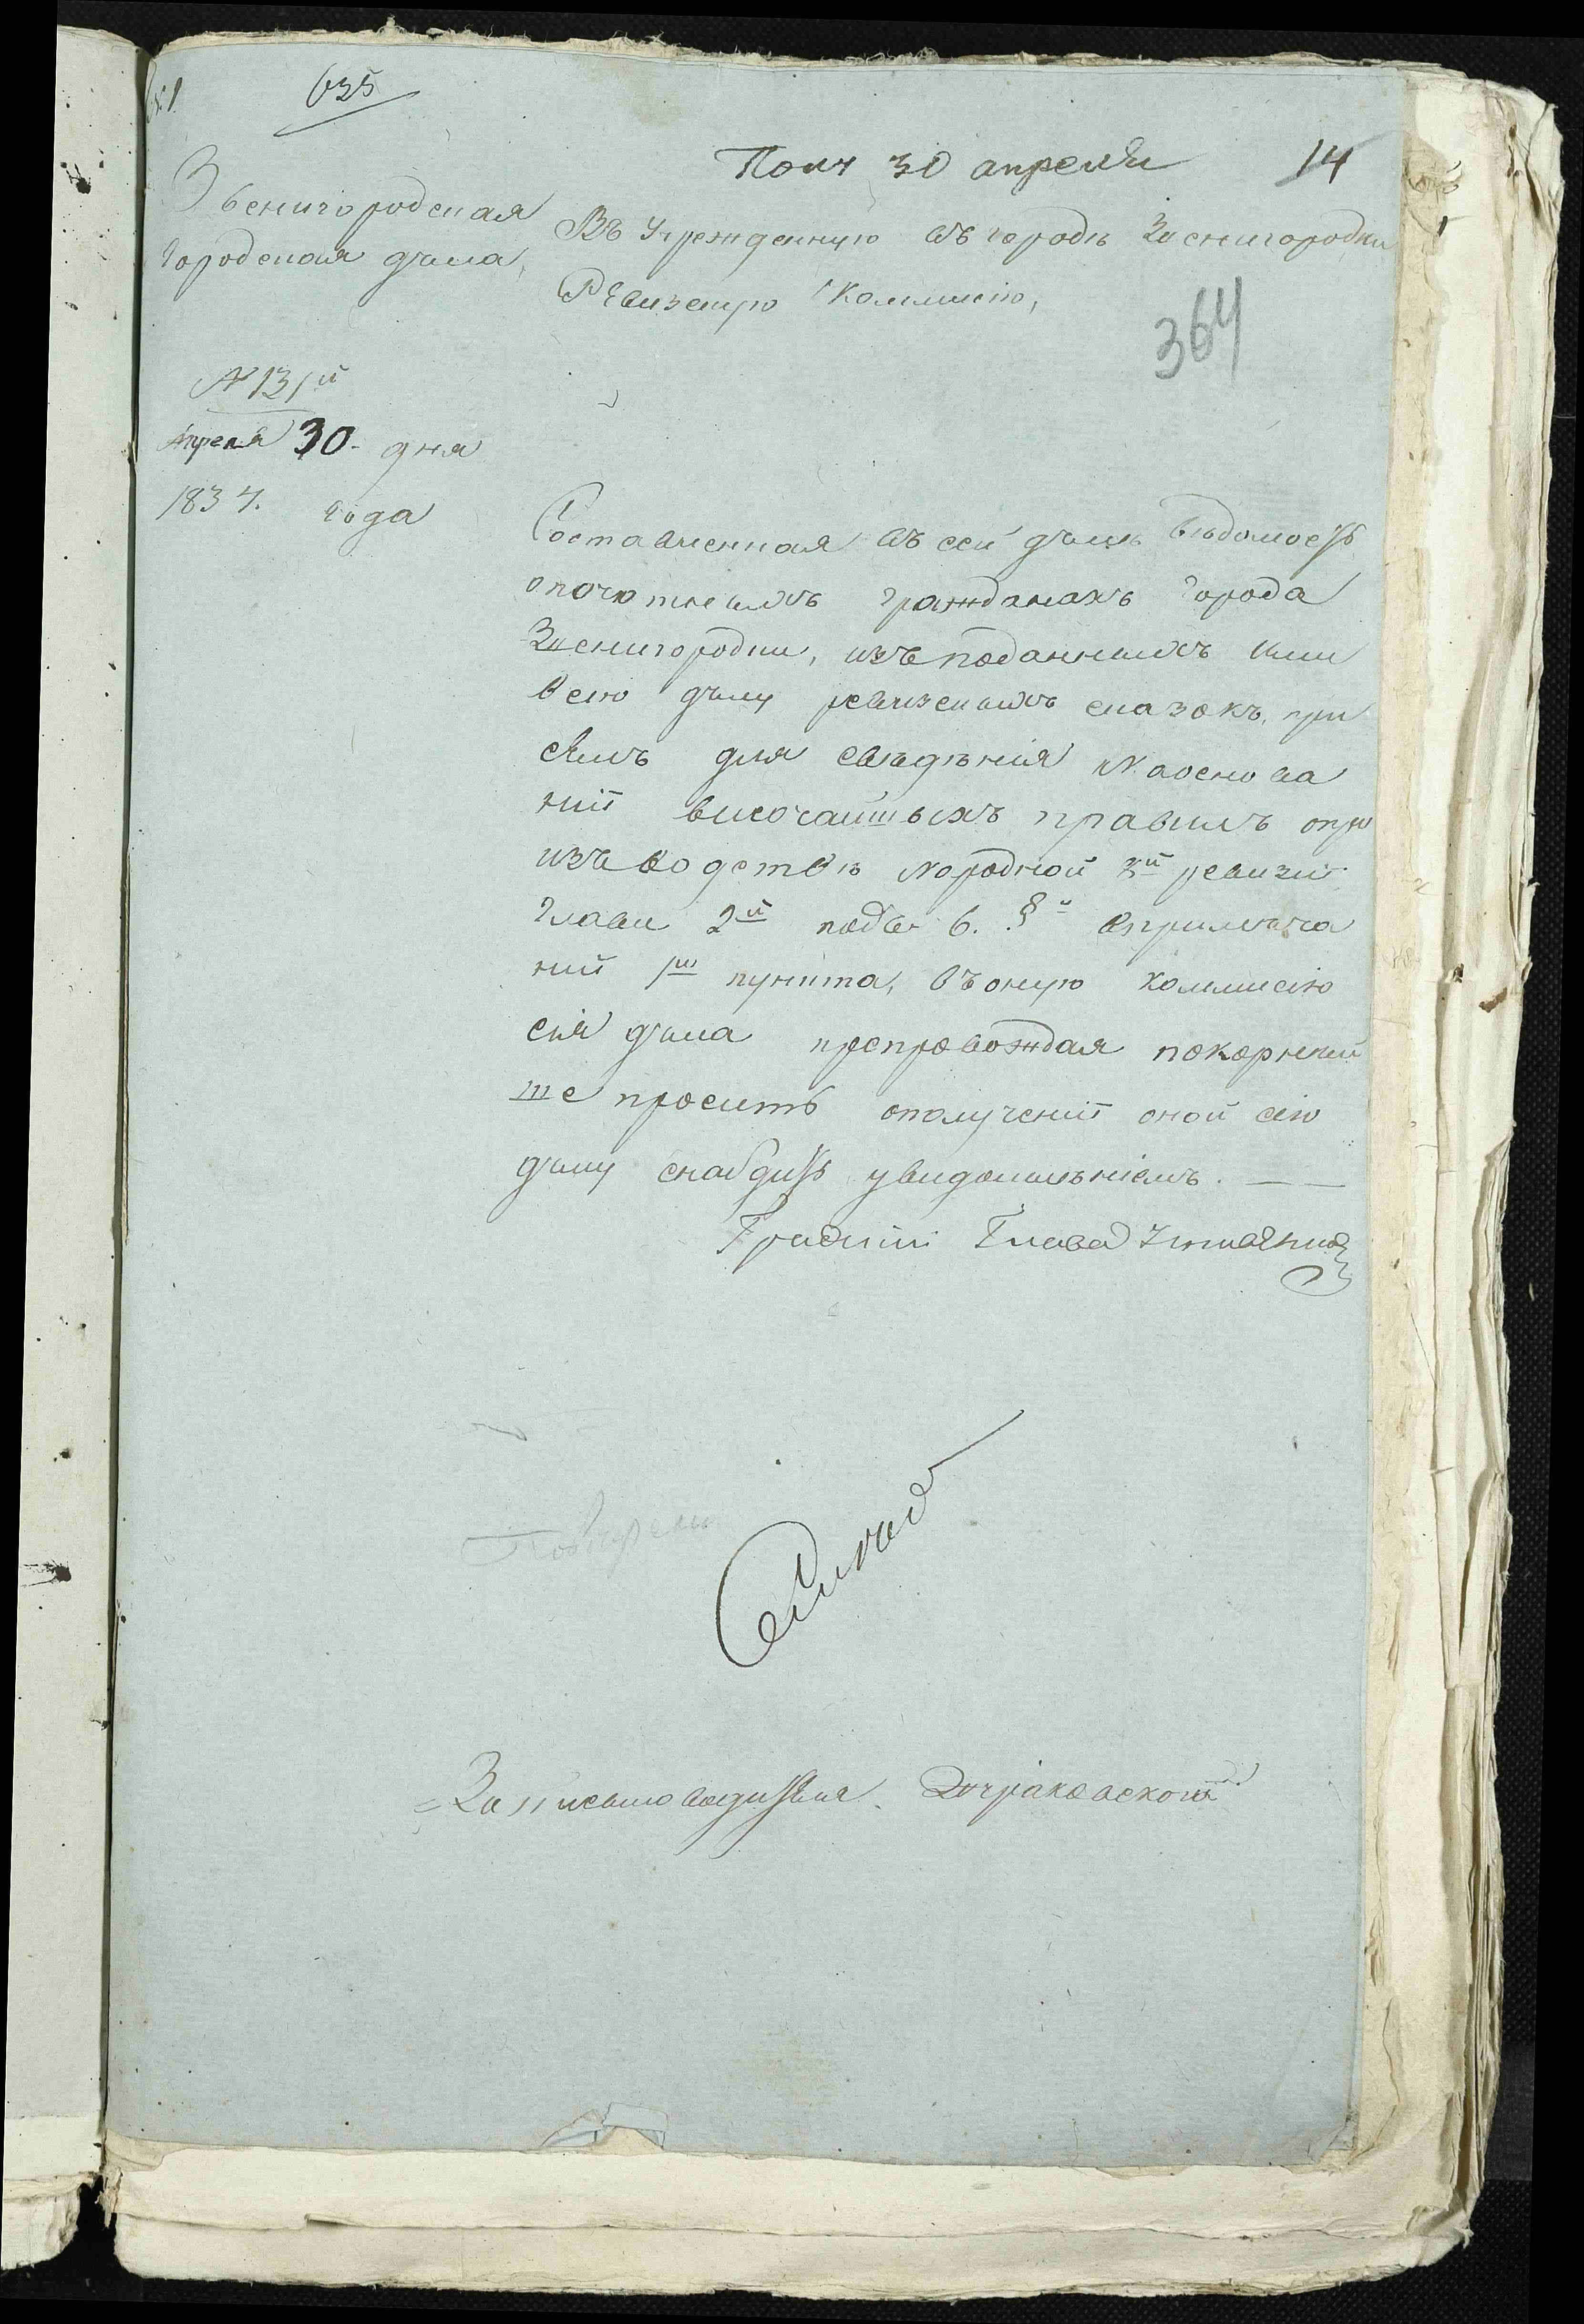 635
Полч 30 апреля 14
Звенигородская
Городская дума,
Въ Учрежденную въ городѣ Звенигородки
Ревизскую Коммисию,
364
№ 131й
апреля 30 дня
1834. года
Составленная въ сей думѣ вѣдомость
опочотныхъ гражданахъ города
Звенигородки, изъ поданныхъ ими
всею думу ревизскихъ сказокъ, при
семъ для свѣдѣния Наоснова
нии височайшыхъ правилъ опро
изъводствѣ народной 8й ревизи
Глави 2й подъ 6. § впримѣча
нии 1го пункта, въоную коммисию
сия дума препровождая покорней
ше просить ополучении оной сию
думу снабдить увидомленіемъ.
Градский Глава
Запысмоводителя